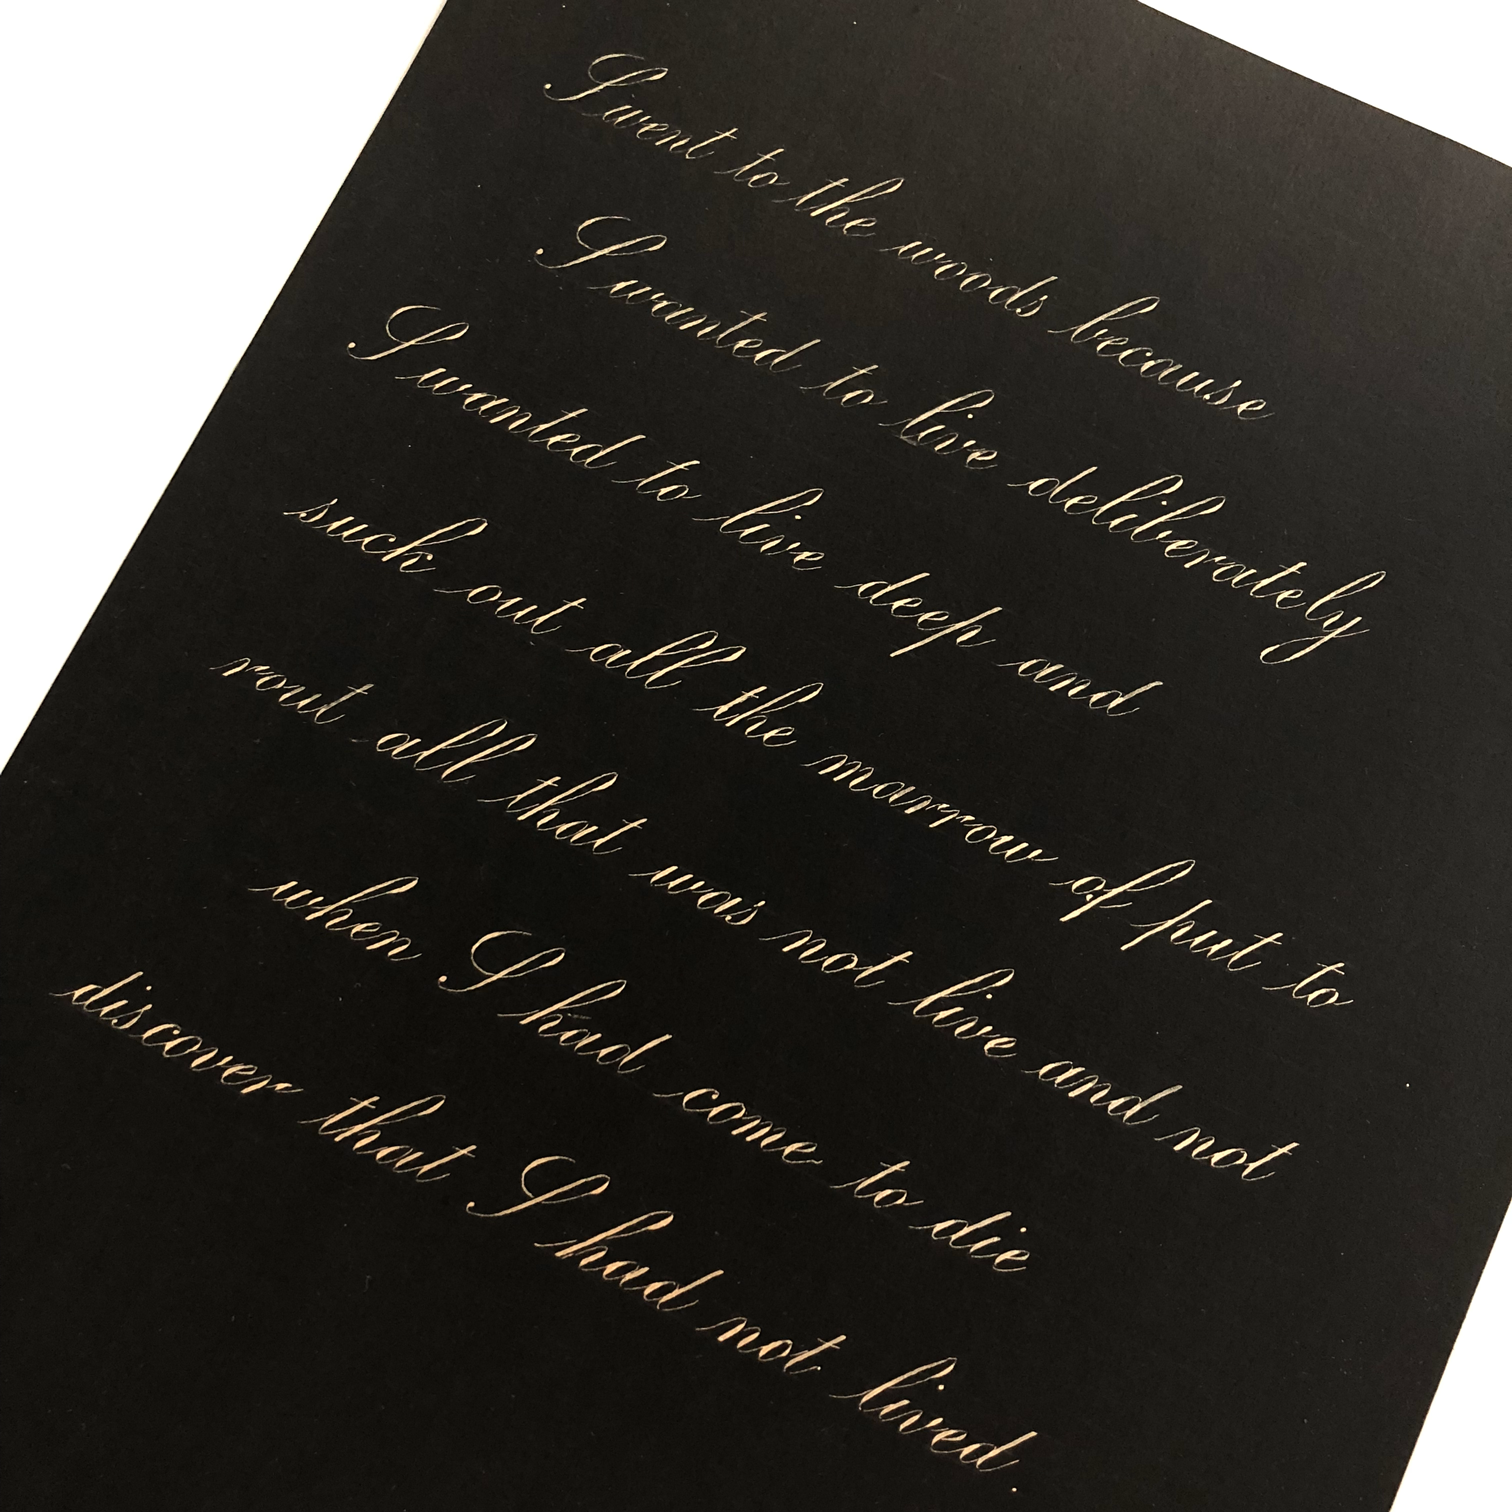 I went to the woods because
I wanted to live deliberately
I wanted to live deep and
suck out all the marrow of put to
rout all that was not live and not
when I had come to die
discover that I had not lived.